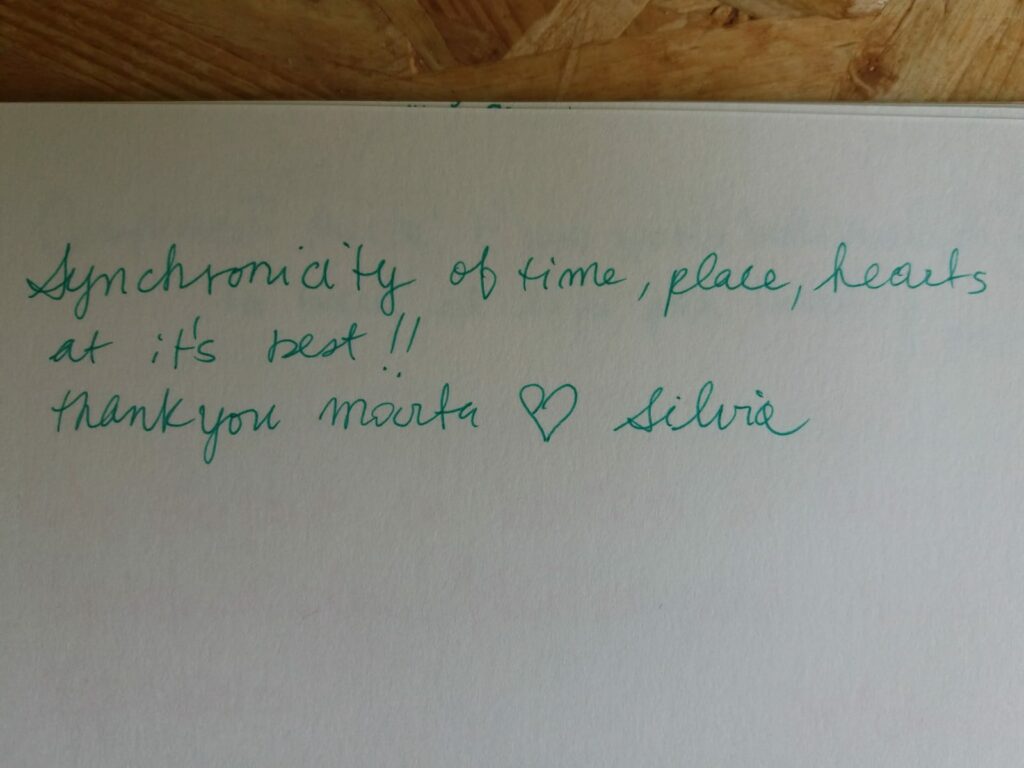 Synchronicity of time, place, hearts
at it's best!!
thank you Marta ♡ Silvia